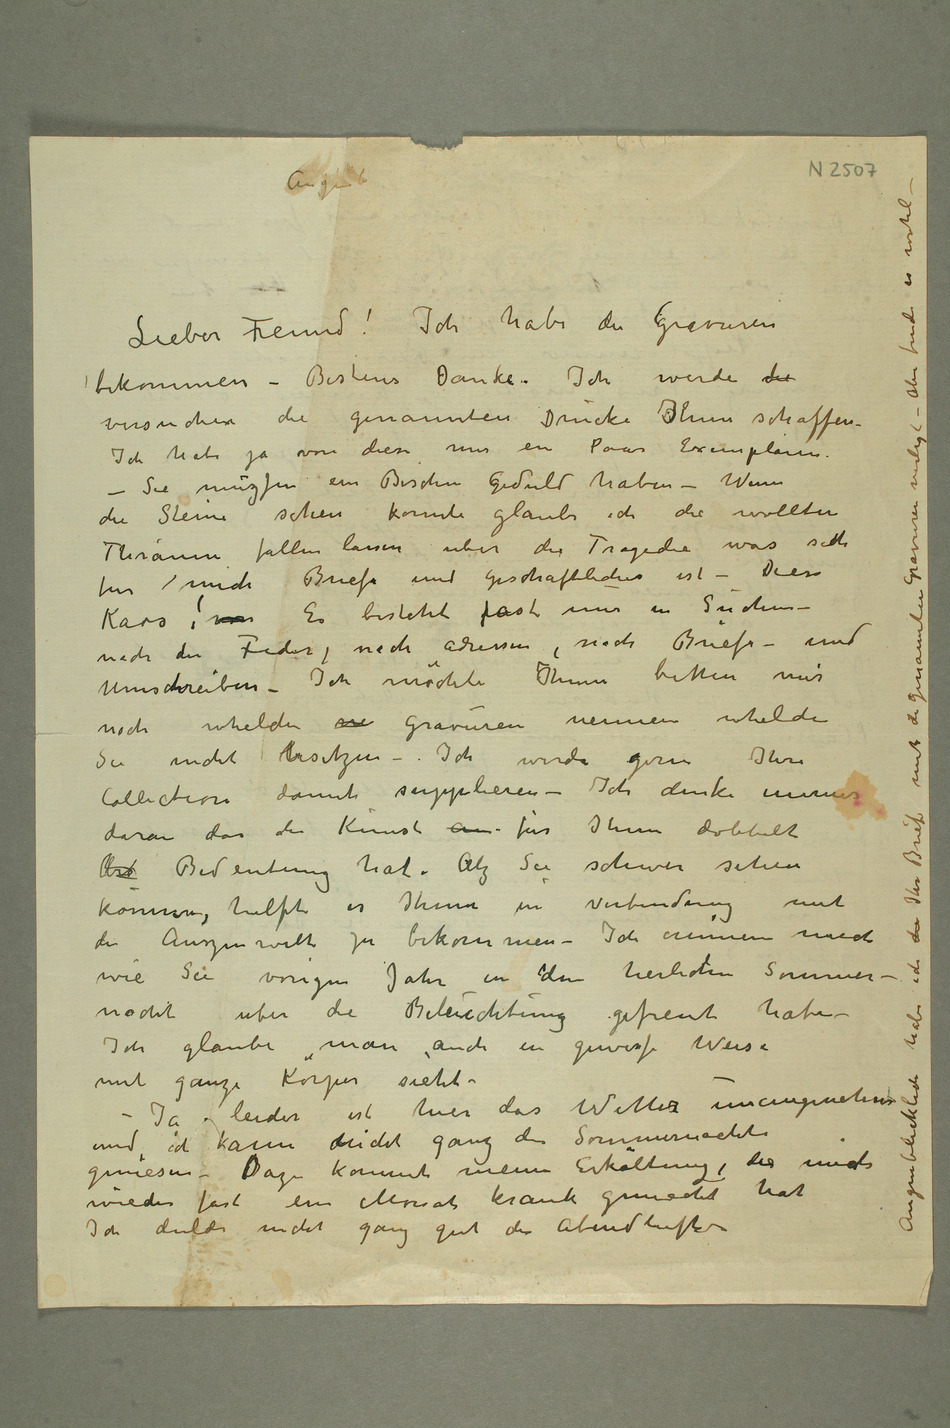 August
N 2507
Lieber Freund! Ich habe die Gravüren
bekommen – Bestens Danke. Ich werde die
versuchen die genannten Drücke Ihnen schaffen.
Ich habe ja von diese nur ein Paar Exemplaren.
– Sie müszen ein Bischen Geduld haben – Wenn
die Steine sehen konnte glaube ich die wollten
Thränen fallen lassen uber die Tragedie was sich
fur mich Briefe und geschäftliches ist – Diese
Kaos! Es besteht fast nur in Suchen –
nach die Feder, nach adressen, nach Briefe – und
Umschreiben – Ich möchte Ihnen bitten mir
noch whelche Gravüren nennen whelche
Sie nicht besitzen – Ich werde gern Ihre
Collection damit supplieren – Ich denke immer
daran das die Kunst für Ihnen dobbelt
Bedeutung hat. Alz Sie schwer sehen
können, helft es Ihnen in Verbindung mit
die Auszenwelt zu bekommen – Ich erinnere mich
wie Sie vorigen Jahr in den herlichen Sommer–
nacht uber die Beleuchtung gefreut habe –
Ich glaube „man auch in gewisse Weise
mit ganze Körper sieht –
– Ja leider ist hier das Wetter unangenehm
und ich kann nicht ganz die Sommernächte
geniesen – Dazu kommt meine Erkältung, die mich
wieder fast ein Monat krank gemacht hat
Ich dulde nicht ganz gut die Abendluft –
Augenblicklich habe ich die Ihr Brief mit die genannten Gravüren verlegt – aber finde es wohl –